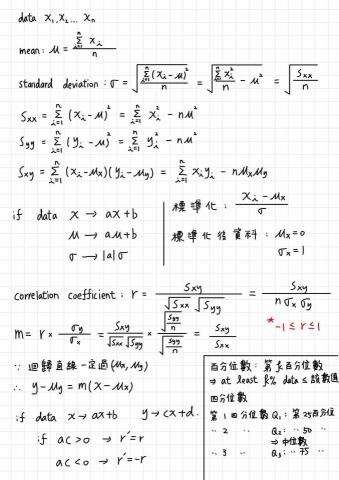 data x₁, x₂ ... xₙ
mean: μ = \frac{\sum_{i=1}^{n} x_i}{n}
standard deviation: σ = \sqrt{\frac{\sum_{i=1}^{n} (x_i-μ)^2}{n}} = \sqrt{\frac{\sum_{i=1}^{n} x_i^2}{n} - μ^2} = \sqrt{\frac{Sxx}{n}}
Sxx = \sum_{i=1}^{n} (x_i-μ)^2 = \sum_{i=1}^{n} x_i^2 - nμ^2
Syy = \sum_{i=1}^{n} (y_i-μ)^2 = \sum_{i=1}^{n} y_i^2 - nμ^2
Sxy = \sum_{i=1}^{n} (x_i-μx)(y_i-μy) = \sum_{i=1}^{n} x_i y_i - nμxμy
if data x → ax+b
μ → aμ+b
σ → |a|σ
標準化: \frac{x_i - μx}{σ}
標準化後資料: μx=0
σx=1
correlation coefficient: r = \frac{Sxy}{\sqrt{Sxx}\sqrt{Syy}} = \frac{Sxy}{nσxσy}
* -1 ≤ r ≤ 1
m = r × \frac{σy}{σx} = \frac{Sxy}{\sqrt{Sxx}\sqrt{Syy}} × \frac{\sqrt{\frac{Syy}{n}}}{\sqrt{\frac{Syy}{n}}} = \frac{Sxy}{Sxx}
∵ 迴歸直線一定過(μx, μy)
∴ y-μy = m(x-μx)
if data x → ax+b y → cx+d.
if ac>0 → r'=r
ac<0 → r'=-r
百分位數: 第k百分位數
⇒ at least k% data ≤ 該數值
四分位數
第1四分位數Q₁: 第25百分位
〃 2 〃 Q₂: 〃 50 〃
⇒ 中位數
〃 3 〃 Q₃: 〃 75 〃